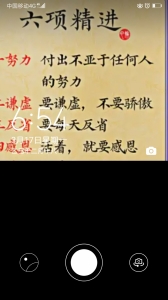 中国移动4G
六项精进
努力 付出不亚于任何人
的努力
谦虚 要谦虚，不要骄傲
反省 要每天反省
感恩 活着，就要感恩
6:54